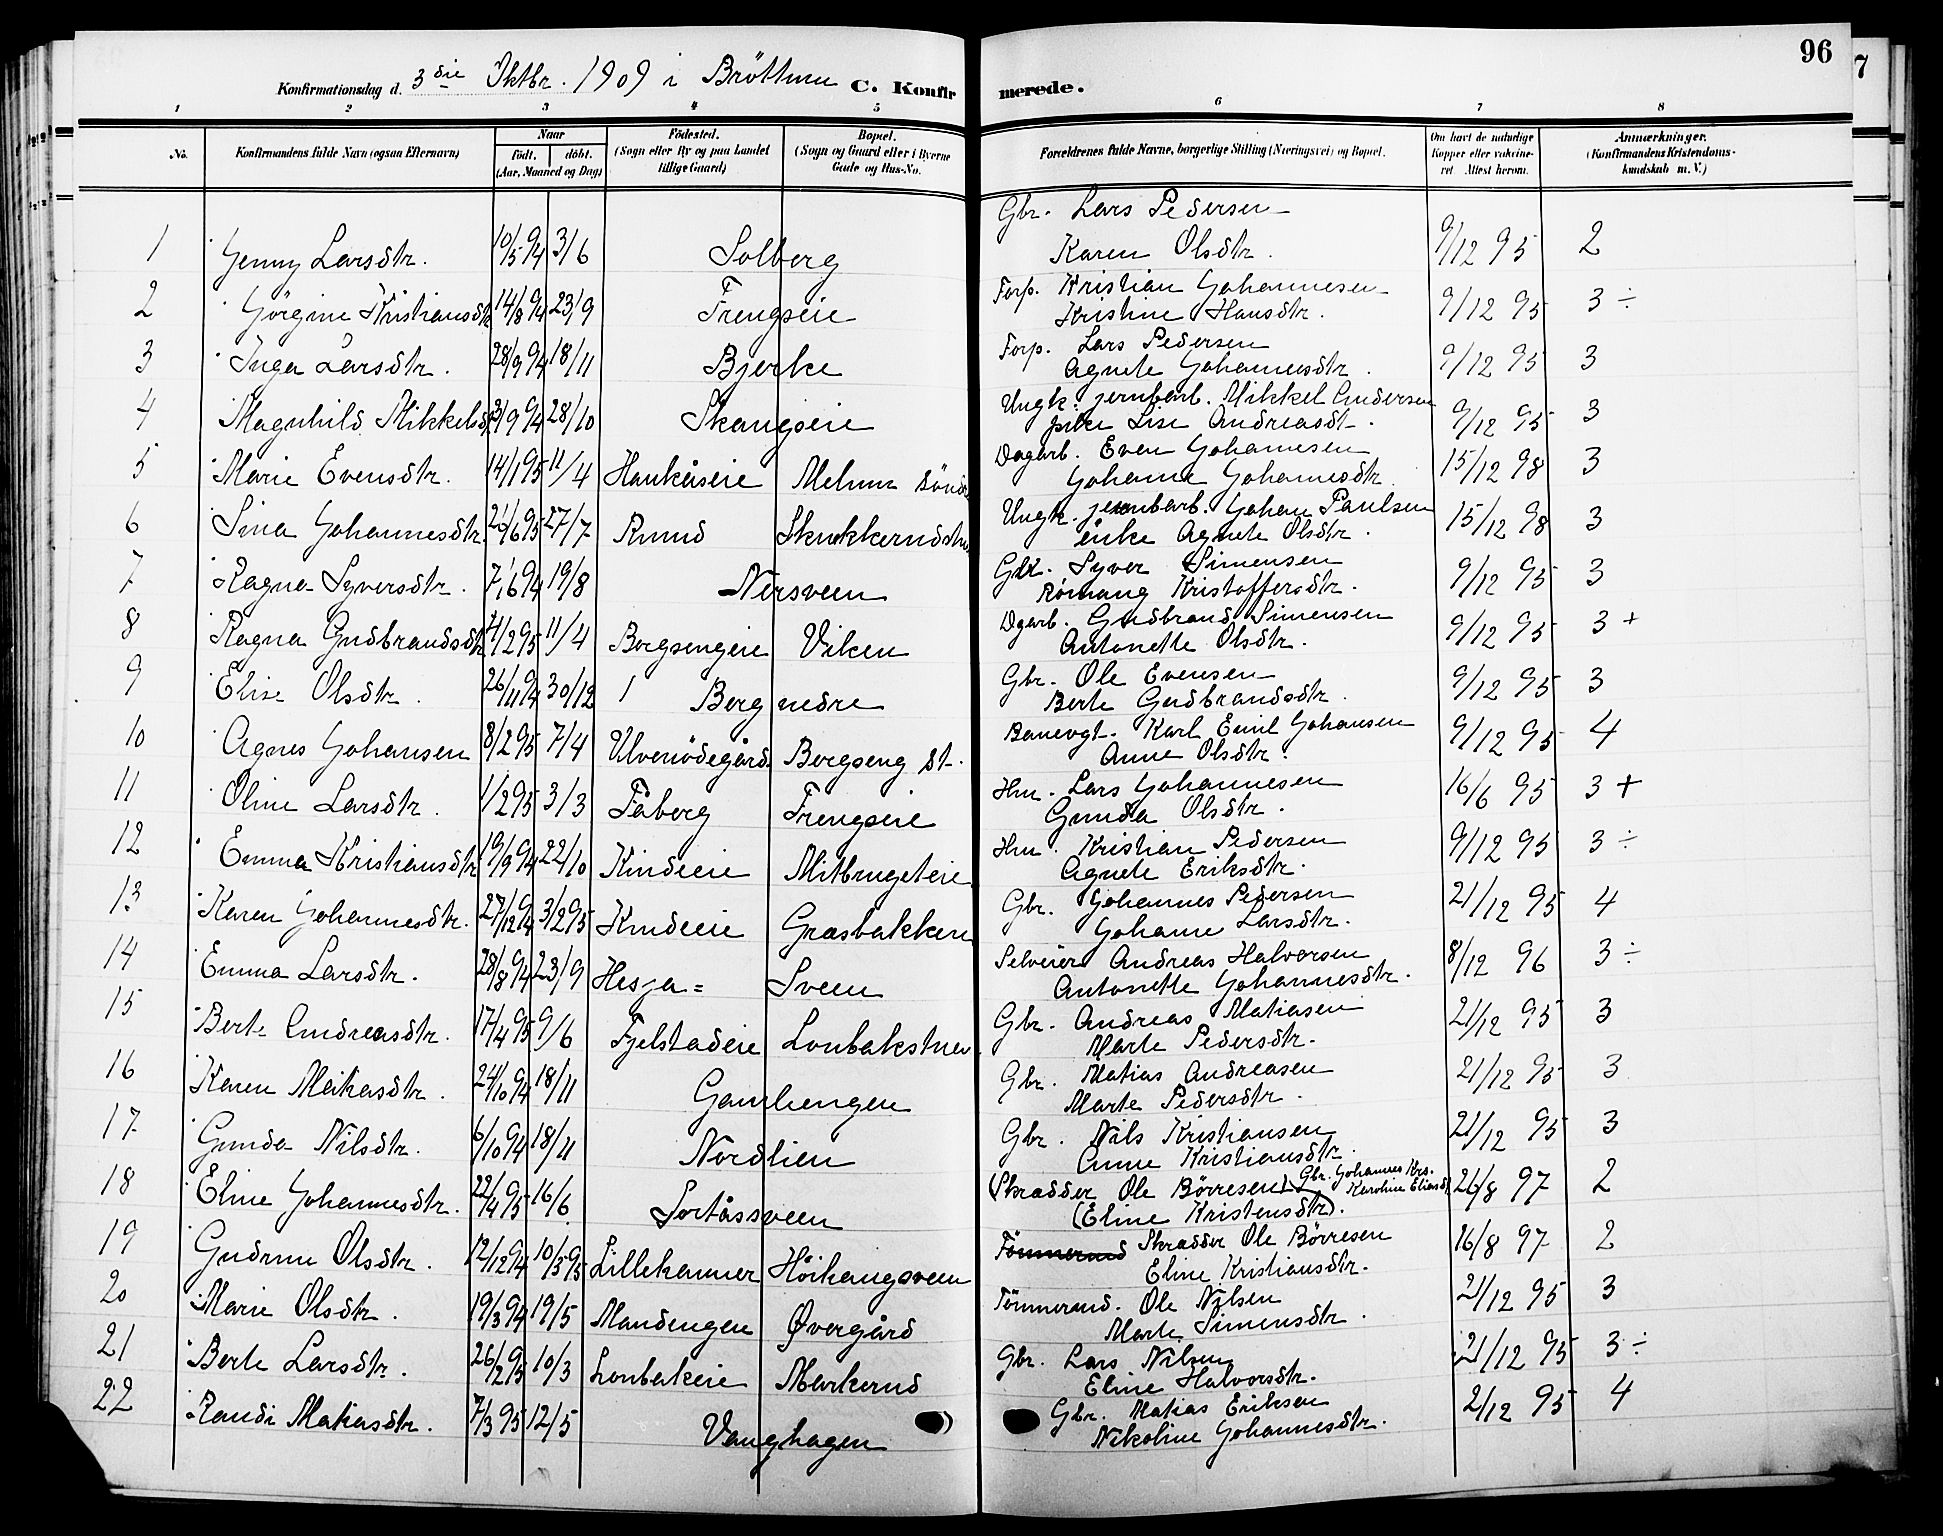 96
7
Konfirmationsdag d. 3die Oktbr. 1909 i Bröttum C. Konfirmerede.
1 2 3 4 5 6 7 8
No. Konfirmandens fulde Navn (ogsaa Efternavn) Naar födt. döbt. (Aar, Maaned og Dag) Födested. (Sogn eller By og paa Landet tillige Gaard) Bopæl. (Sogn og Gaard eller i Byerne Gade og Hus-No. Forældrenes fulde Navne, borgerlige Stilling (Næringsvei) og Bopæl. Om havt de naturlige Kopper eller vaccineret Attest herom. Anmærkninger. (Konfirmandens Kristendomskundskab m. V.)
Gbr. Lars Pedersen
1 Jenny Larsdtr. 10/5 94 3/6 Solberg Karen Olsdtr. 9/12 95 2
Forp. Kristian Johannesen
2 Jörgine Kristiansdtr 14/8 94 23/9 Frengseie Kristine Hansdtr. 9/12 95 3 ÷
Forp. Lars Pedersen
3 Inga Larsdtr. 28/9 94 18/11 Bjerke Agnete Johannesdtr. 9/12 95 3
Ungk. jernbarb. Mikkel Andersen
4 Magnhild Mikkelsd. 9 94 28/10 Skangseie pike Lise Andreasdt. 9/12 95 3
Dagarb. Even Johannesen
5 Marie Evensdtr. 14/1 95 11/4 Haukåseie Melum Johanne Johannesdtr. 15/12 98 3
Ungk. jernbarb. Johan Paulsen
6 Sina Johannesdtr. /6 95 27/7 Rund enke Agnete Olsdtr. 15/12 98 3
Gbr. Syver Simensen
7 Ragna Syversdtr. 7/6 94 19/8 Nersveen Kristoffersdtr. 9/12 95 3
Dgarb. Gudbrand Simensen
8 Ragna Gudbrandsdtr /2 95 11/4 Bergsengeie Viken Antonette Olsdtr. 9/12 95 3 +
Gbr. Ole Evensen
9 Elise Olsdtr. 26/11 94 30/12 Berg nedre Berte Gudbrandsdtr. 9/12 95 3
Banevogt. Karl Emil Johansen
10 Agnes Johansen 8/2 95 7/4 Ulverödegård Bergseng St. Anne Olsdtr. 9/12 95 4
Hm. Lars Johannesen
11 Oline Larsdtr. 1/2 95 3/3 Fåberg Frengseie Gunda Olsdtr. 16/6 95 3 +
Hm. Kristian Pedersen
12 Emma Kristiansdtr 19/9 94 22/10 Kindeeie Mitbrugeteie Agnete Eriksdtr. 9/12 95 3 ÷
Gbr. Johannes Pedersen
13 Karen Johannesdtr. 27/12 94 3/2 95 Kindeeie Græsbakken Johanne Larsdtr. 21/12 95 4
Selveier Andreas Halvorsen
14 Emma Larsdtr. 28/8 94 23/9 Hesja= Sveen Antonette Johannesdtr. 8/12 96 3 ÷
Gbr. Andreas Matiasen
15 Berte Andreasdtr. 17/4 95 9/6 Fjelstadeie Marte Pedersdtr. 21/12 95 3
Gbr. Matias Andreasen
16 Karen Matiasdtr. 24/10 94 18/11 Gamlengen Marte Pedersdtr. 21/12 95 3
Gbr. Nils Kristiansen
17 Gunda Nilsdtr. 6/10 94 18/11 Nordlien Anne Kristiansdtr. 21/12 95 3
(Skrædder Ole Börresen) Gbr. Johannes Krs. Karoline Eliasd.
18 Eline Johannesdtr. 22/4 95 16/6 Sortåssveen (Eline Kristensdtr). 26/8 97 2
Tömmermd Skrædder Ole Börresen
19 Gudrun Olsdtr. 12/12 94 10/5 95 Lillehammer Höihaugsveen Eline Kristiansdtr. 16/8 97 2
Tömmermd. Ole Nilsen
20 Marie Olsdtr. 19/3 94 19/5 Mandengen Øvergård Marte Simensdtr. 21/12 95 3
Gbr. Lars Nilsen
21 Berte Larsdtr. 26/2 95 10/3 Lonbakeie Markerud Eline Halvorsdtr. 21/12 95 3 ÷
Gbr. Matias Eriksen
22 Randi Matiasdtr. 7/3 95 12/5 Vanghagen Nikoline Johannesdtr. 2/12 95 4